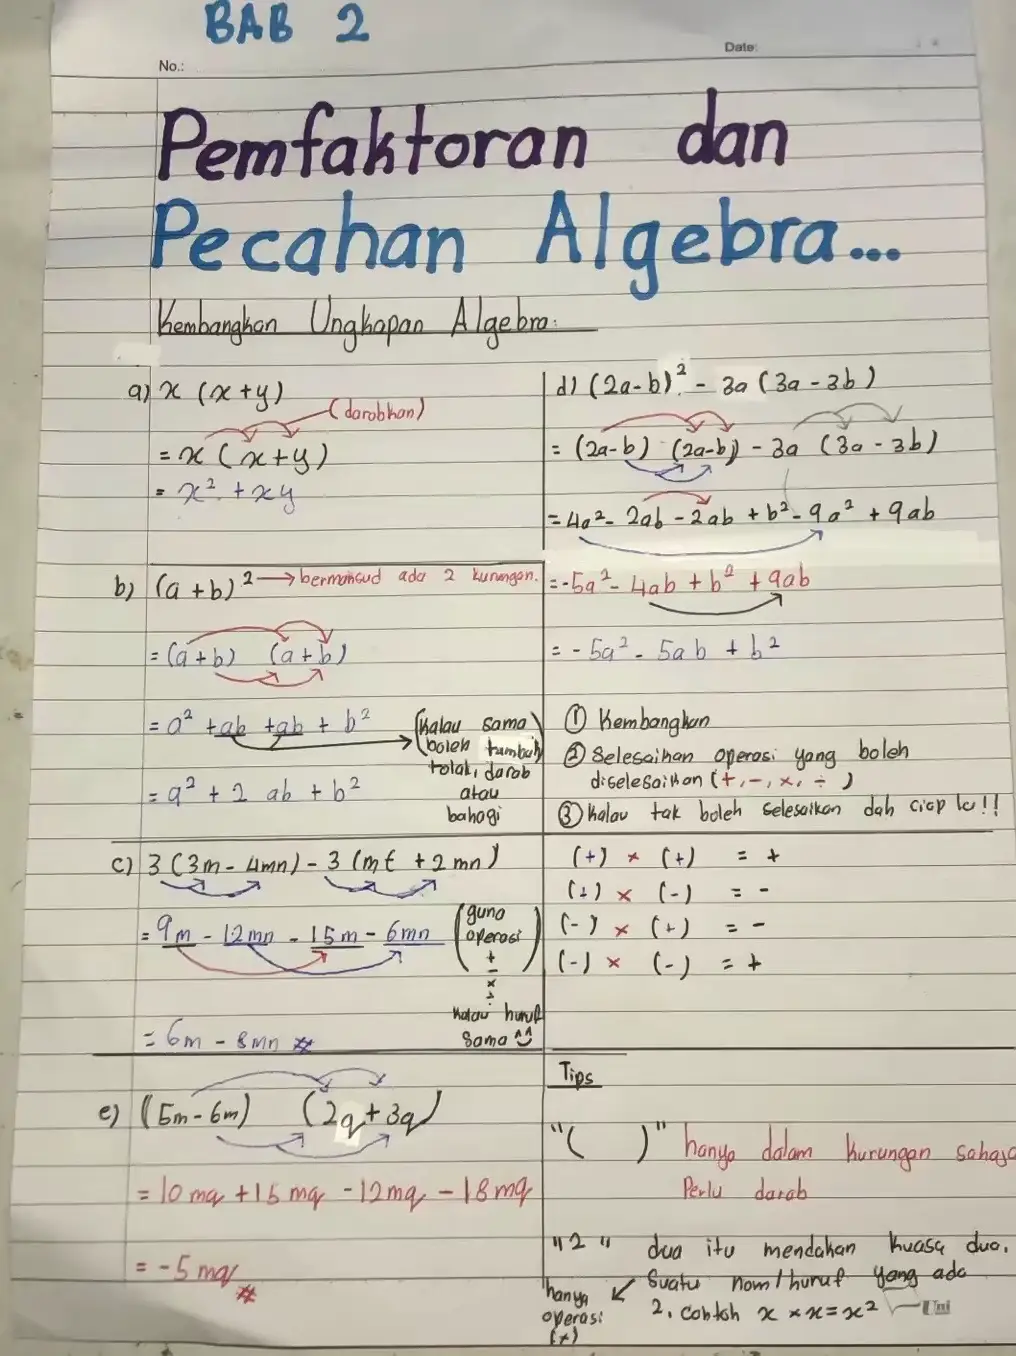 BAB 2
No.:
Date:
Pemfaktoran dan
Pecahan Algebra...
Kembangkan Ungkapan Algebra:
a) x (x+y)
(darabkan)
= x (x+y)
= x² + xy
b) (a+b)² → bermaksud ada 2 kurungan.
= (a+b) (a+b)
= a² + ab + ab + b²
(Kalau sama
boleh tambah
tolak, darab
atau
bahagi
= a² + 2 ab + b²
c) 3 (3m - 4mn) - 3 (m + 2mn)
= 9m - 12mn - 15m - 6mn
(guna
operasi
+
-
×
÷)
Kalau huruf
sama ^^
= 6m - 8mn #
e) (5m - 6m) (2q + 3q)
= 10mq + 15mq - 12mq - 18mq
= -5mq #
d) (2a-b)² - 3a (3a - 3b)
= (2a-b) (2a-b) - 3a (3a - 3b)
= 4a² - 2ab - 2ab + b² - 9a² + 9ab
= -5a² - 4ab + b² + 9ab
= -5a² - 5ab + b²
① Kembangkan
② Selesaikan operasi yang boleh
diselesaikan (+, -, ×, ÷)
③ Kalau tak boleh selesaikan dah siap tu!!
(+) × (+) = +
(+) × (-) = -
(-) × (+) = -
(-) × (-) = +
Tips
"( )" hanya dalam kurungan sahaja
Perlu darab
"2" dua itu mendakan kuasa dua.
Suatu nom/huruf yang ada
2. Contoh x × x = x²
hanya
operasi
(×)